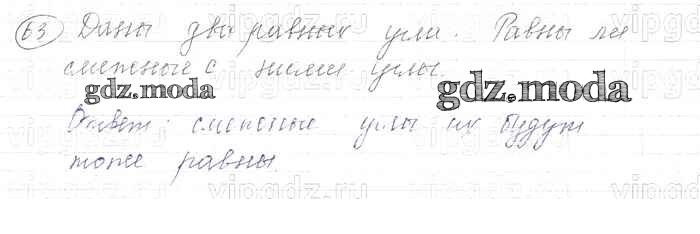 63 Даны два равных угла. Равны ли
смежные с ними углы.
gdz.moda
gdz.moda
Ответ: смежные углы их будут
тоже равны.
vipgdz.ru